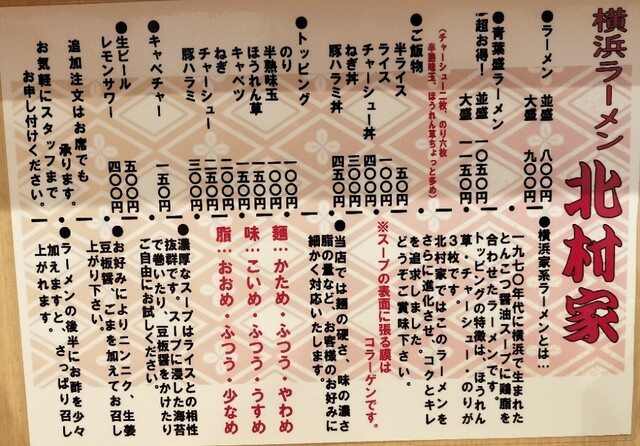 横浜ラーメン 北村家
●ラーメン 並盛 八〇〇円
大盛 九〇〇円
●青葉盛ラーメン
超お得! 並盛 一〇五〇円
大盛 一一五〇円
(チャーシュー二枚、のり六枚
半熟味玉、ほうれん草ちょっと多め)
●ご飯物
半ライス 五〇円
ライス 一〇〇円
チャーシュー丼 四〇〇円
ねぎ丼 三五〇円
豚ハラミ丼 四五〇円
●トッピング
のり 一〇〇円
半熟味玉 一〇〇円
ほうれん草 一五〇円
キャベツ 一五〇円
ねぎ 二〇〇円
チャーシュー 二〇〇円
豚ハラミ 三〇〇円
●キャベチャー 一五〇円
●生ビール 五〇〇円
レモンサワー 四〇〇円
追加注文はお席でも
承ります。
お気軽にスタッフまで
お申し付けください。
●横浜家系ラーメンとは…
一九七〇年代に横浜で生まれた
とんこつ醤油スープに鶏脂を
合わせたラーメンです。
トッピングの特徴は、ほうれん
草・チャーシュー・のりが
3枚です。
北村家ではこのラーメンを
さらに進化させ、コクとキレ
を追求しました。
どうぞご賞味下さい。
※スープの表面に張る膜は
コラーゲンです。
●当店では麺の硬さ、味の濃さ
脂の量など、お客様のお好みに
細かく対応いたします。
麺…かため・ふつう・やわめ
味…こいめ・ふつう・うすめ
脂…おおめ・ふつう・少なめ
●濃厚なスープはライスとの相性
抜群です。スープに浸した海苔
で巻いたり、豆板醤をかけたり
ご自由にお試しください。
●お好みによりニンニク、生姜
豆板醤、ごまを加えてお召し
上がり下さい。
●ラーメンの後半にお酢を少々
加えますと、さっぱり召し
上がれます。